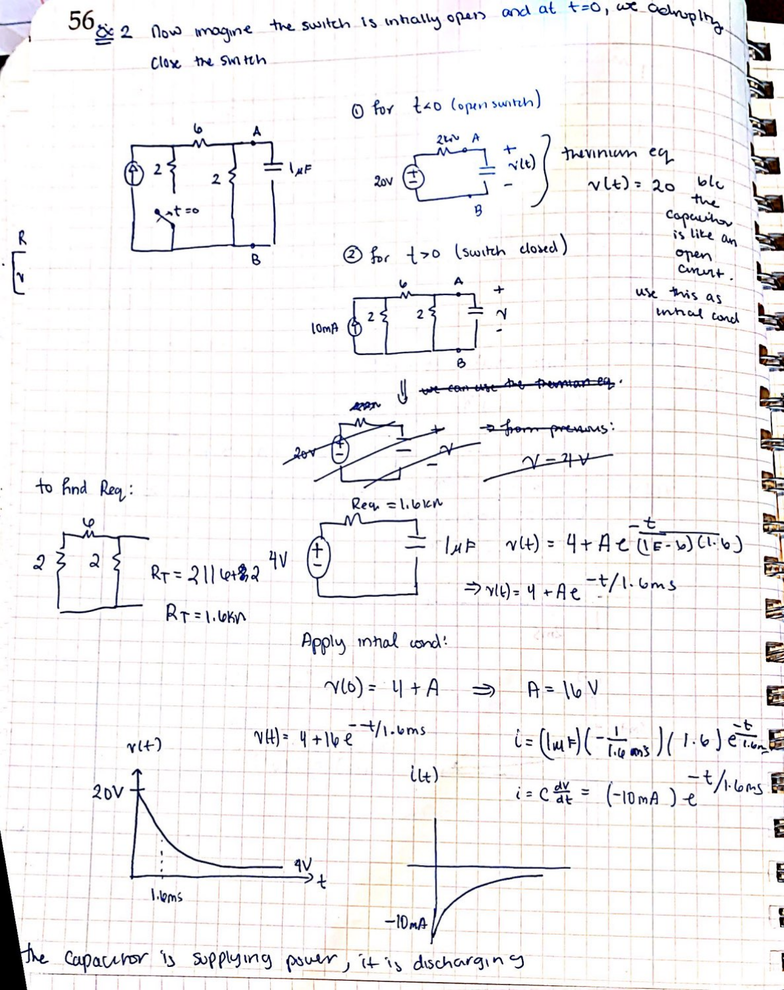 56
Ex 2 Now imagine the switch is initially open and at t=0, we abruptly
close the switch
① for t<0 (open switch)
6
A
2
2
1μF
t=0
B
A
20V
+
v(t)
-
B
thevinium eq
v(t) = 20 b/c
the
capacitor
is like an
open
circuit.
use this as
initial cond
R
② for t>0 (switch closed)
6
A
+
10mA
2
2
v
-
B
⇓ we can use the thevenian eq.
20V
+
-
v
→ from previous:
v = 4V
to find Req:
6
2
2
RT = 2||6+2
RT = 1.6kΩ
Req = 1.6kΩ
4V
1μF
v(t) = 4 + Ae^(-t/(1E-6)(1.6))
⇒ v(t) = 4 + Ae^(-t/1.6ms)
Apply intial cond:
v(0) = 4 + A ⇒ A = 16V
v(t) = 4 + 16e^(-t/1.6ms)
i = (1μF)(-1/1.6ms)(1.6)e^(-t/1.6m)
i = C dv/dt = (-10mA)e^(-t/1.6ms)
v(t)
20V
4V
t
1.6ms
i(t)
-10mA
the capacitor is supplying power, it is discharging